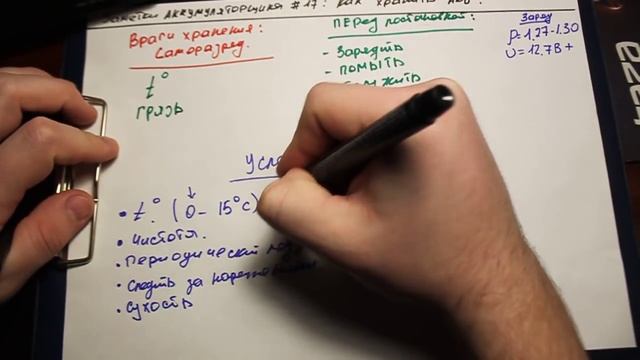 Заметки Аккумуляторщика #17: Как хранить
Враги хранения:
Саморазряд.
t°
грязь
Перед постановкой:
- Зарядить
- помыть
Заряд
ρ=1.27-1.30
U=12.7В+
• t° (0-15°C)
• Чистота.
• Периодический
• Следить за
• Сухость